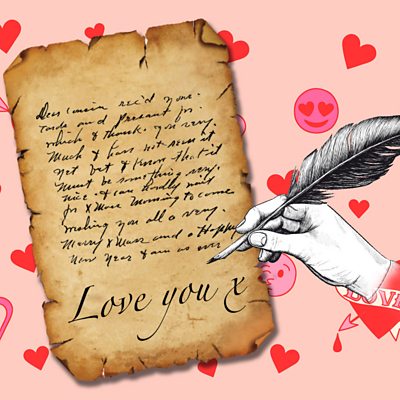 Dear Cousin rec'd your
Cards and Present for
which I thank. you very
Much I have not seen it
yet but I know that it
Must be something very
nice. I can hardly wait
for X Mas Morning to come
making you all a very
Merry X Mas and a Happy
New Year I am as ever
Love you x
LOVE